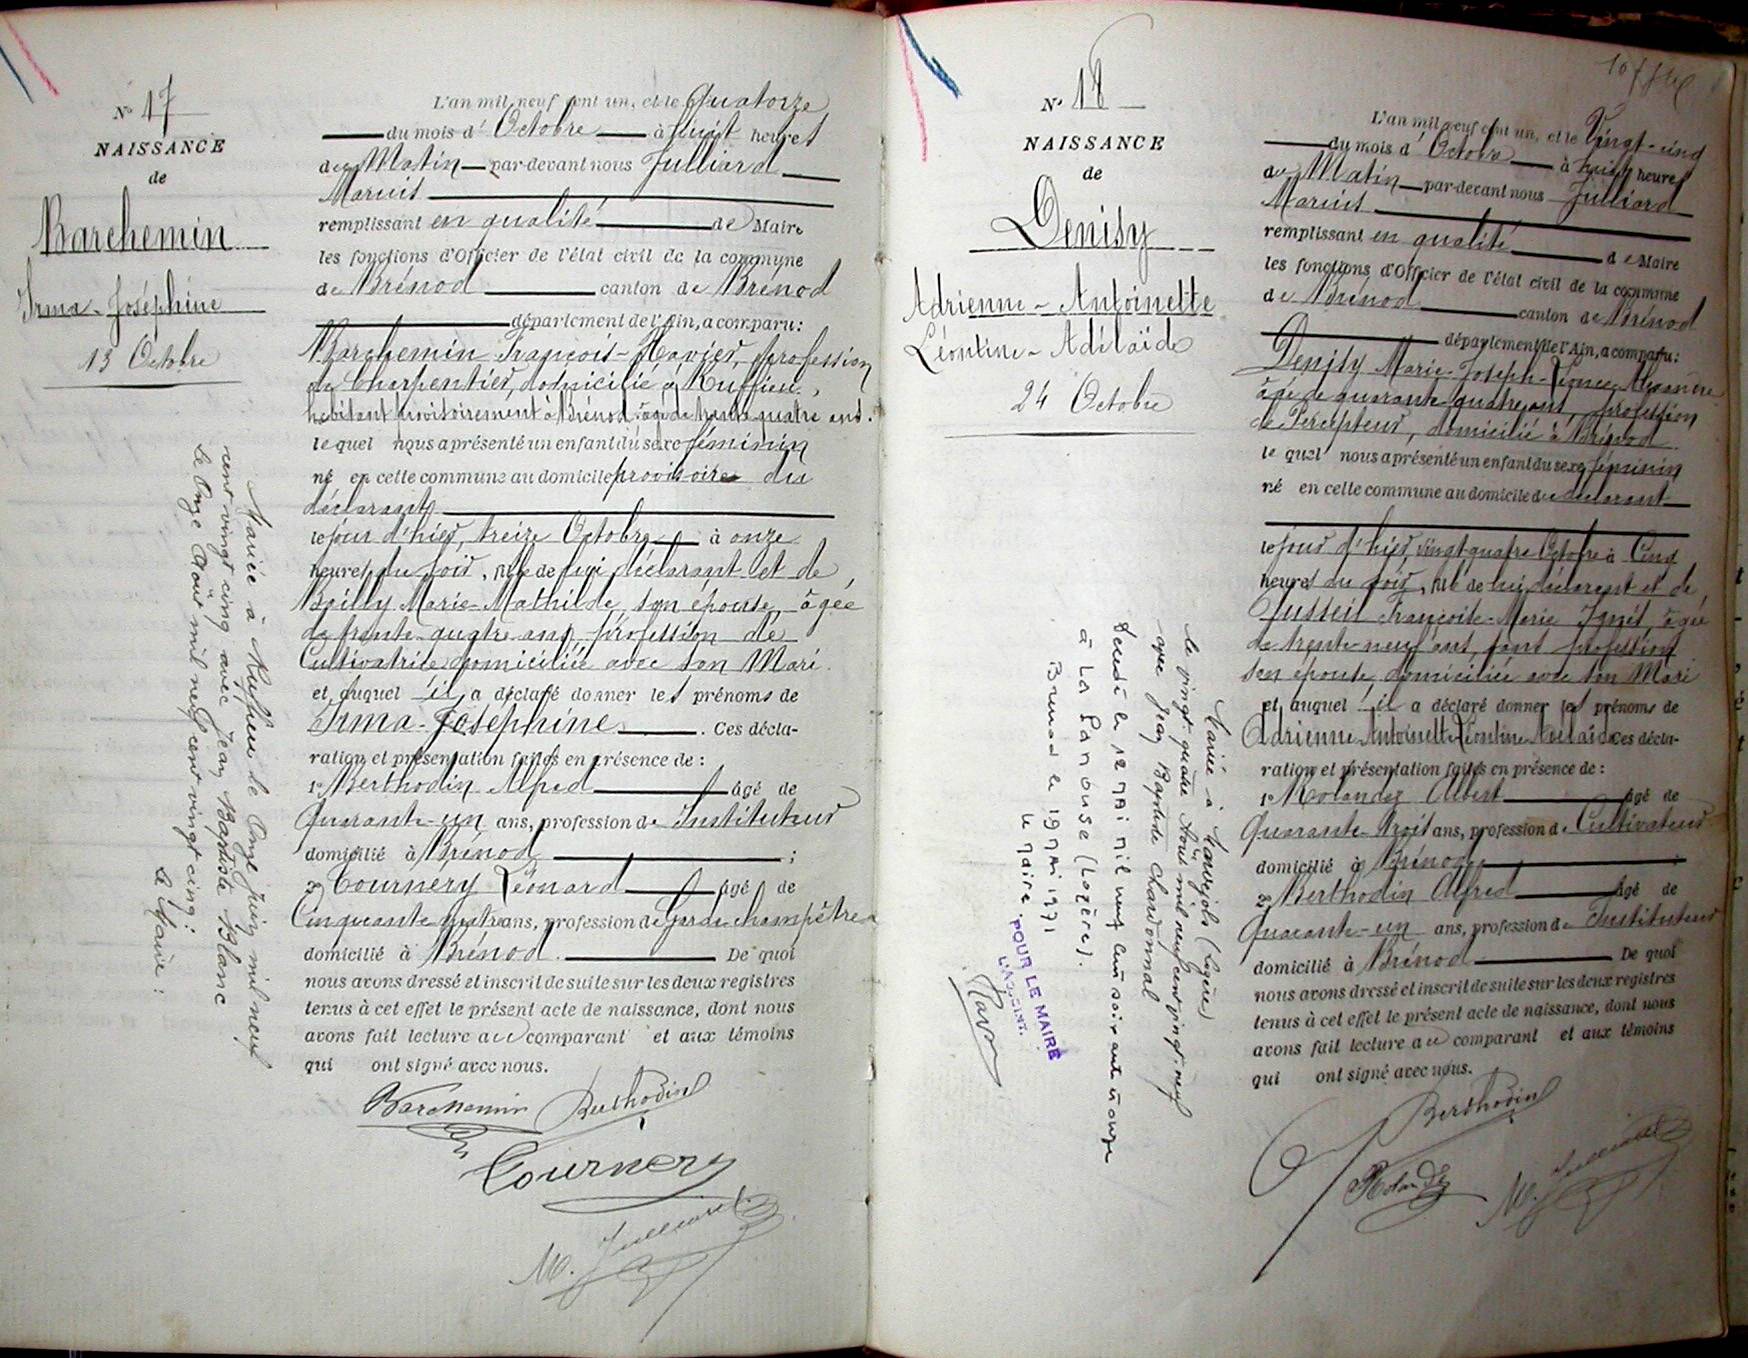 N° 17
NAISSANCE
de
Barchemin
Irma-Joséphine
13 Octobre
Mariée à Ruffieu le Onze Juin mil neuf
cent vingt cinq avec Jean Baptiste Blanc
le Onze Août mil neuf cent vingt cinq :
Le Maire :
L'an mil neuf cent un, et le Quatorze
du mois d' Octobre à huit heures
du Matin par-devant nous Julliard
Marius
remplissant en qualité de Maire
les fonctions d'Officier de l'état civil de la commune
de Brénod canton de Brénod
département de l'Ain, a comparu :
Barchemin François-Xavier, profession
de Charpentier, domicilié à Ruffieu,
habitant provisoirement à Brénod, âgé de trente quatre ans.
lequel nous a présenté un enfant du sexe féminin
né en cette commune au domicile provisoire du
déclarant
le jour d'hier, treize Octobre à onze
heures du soir, fille de lui déclarant et de
Bailly Marie-Mathilde, son épouse, âgée
de trente-quatre ans, profession de
Cultivatrice domiciliée avec son Mari.
et auquel il a déclaré donner les prénoms de
Irma-Joséphine. Ces décla-
ration et présentation faites en présence de :
1° Berthodin Alfred âgé de
Quarante-un ans, profession de Instituteur
domicilié à Brénod ;
2° Tournery Léonard âgé de
Cinquante quatre ans, profession de Garde champêtre
domicilié à Brénod. De quoi
nous avons dressé et inscrit de suite sur les deux registres
tenus à cet effet le présent acte de naissance, dont nous
avons fait lecture au comparant et aux témoins
qui ont signé avec nous.
Barchemin Berthodin
Tournery
M. Julliard
N° 18
NAISSANCE
de
Denisy
Adrienne-Antoinette
Léontine-Adélaïde
24 Octobre
Mariée à Marvejols (Lozère)
le vingt quatre Août mil neuf cent vingt neuf
avec Jean Baptiste Chardonnal
Décédée le 12 mai mil neuf cent soixante et onze
à La Panouse (Lozère).
Brenod le 19 mai 1971
Le Maire.
POUR LE MAIRE
L'ADJOINT
L'an mil neuf cent un, et le Vingt-cinq
du mois d' Octobre à huit heures
du Matin par-devant nous Julliard
Marius
remplissant en qualité de Maire
les fonctions d'Officier de l'état civil de la commune
de Brénod canton de Brénod
département de l'Ain, a comparu :
Denisy Marie-Joseph-Léonce Alexandre
âgé de quarante-quatre ans, profession
de Percepteur, domicilié à Brénod
lequel nous a présenté un enfant du sexe féminin
né en cette commune au domicile du déclarant
le jour d'hier, vingt quatre Octobre à Cinq
heures du soir, fille de lui déclarant et de
Françoise-Marie Agnès, âgée
de trente-neuf ans, sans profession
son épouse, domiciliée avec son Mari
et auquel il a déclaré donner les prénoms de
Adrienne Antoinette Léontine Adélaïde Ces décla-
ration et présentation faites en présence de :
1° Rolandez Albert âgé de
Quarante-trois ans, profession de Cultivateur
domicilié à Brénod ;
2° Berthodin Alfred âgé de
Quarante-un ans, profession de Instituteur
domicilié à Brénod De quoi
nous avons dressé et inscrit de suite sur les deux registres
tenus à cet effet le présent acte de naissance, dont nous
avons fait lecture au comparant et aux témoins
qui ont signé avec nous.
Berthodin
Rolandez
M. Julliard